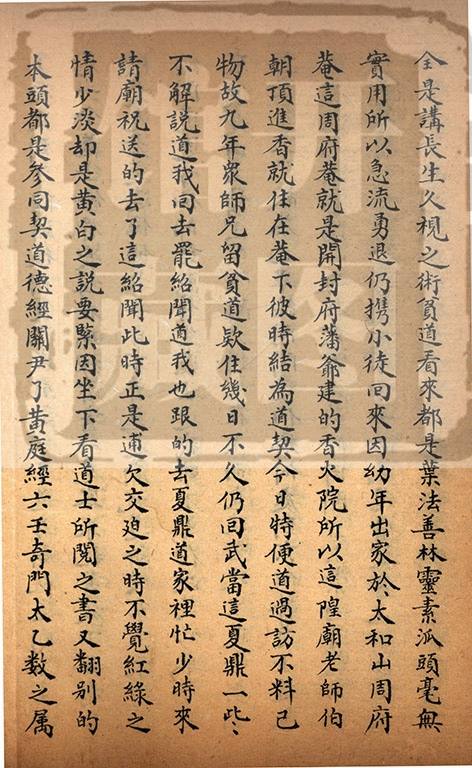 全是講長生久視之術貧道看來都是葉法善林靈素派頭毫無
實用所以急流勇退仍携小徒回來因幼年出家於太和山周府
菴這周府菴就是開封府藩爺建的香火院所以這隍廟老師伯
朝頂進香就住在菴下彼時結為道契今日特便道過訪不料已
物故九年衆師兄留貧道欵住幾日不久仍回武當這夏鼎一些〻
不解説道我回去罷紹聞道我也跟的去夏鼎道家裡忙少時來
請廟祝送的去了這紹聞此時正是逋欠交迫之時不覺紅綠之
情少淡却是黄白之説要緊因坐下看道士所閲之書又翻别的
本頭都是參同契道德經關尹了黄庭經六壬奇門太乙数之属